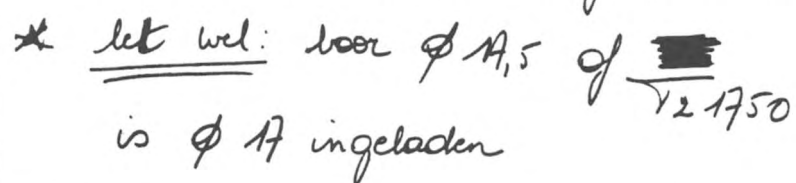 * let wel: boor ø 17,5 of T21750
is ø 17 ingeladen